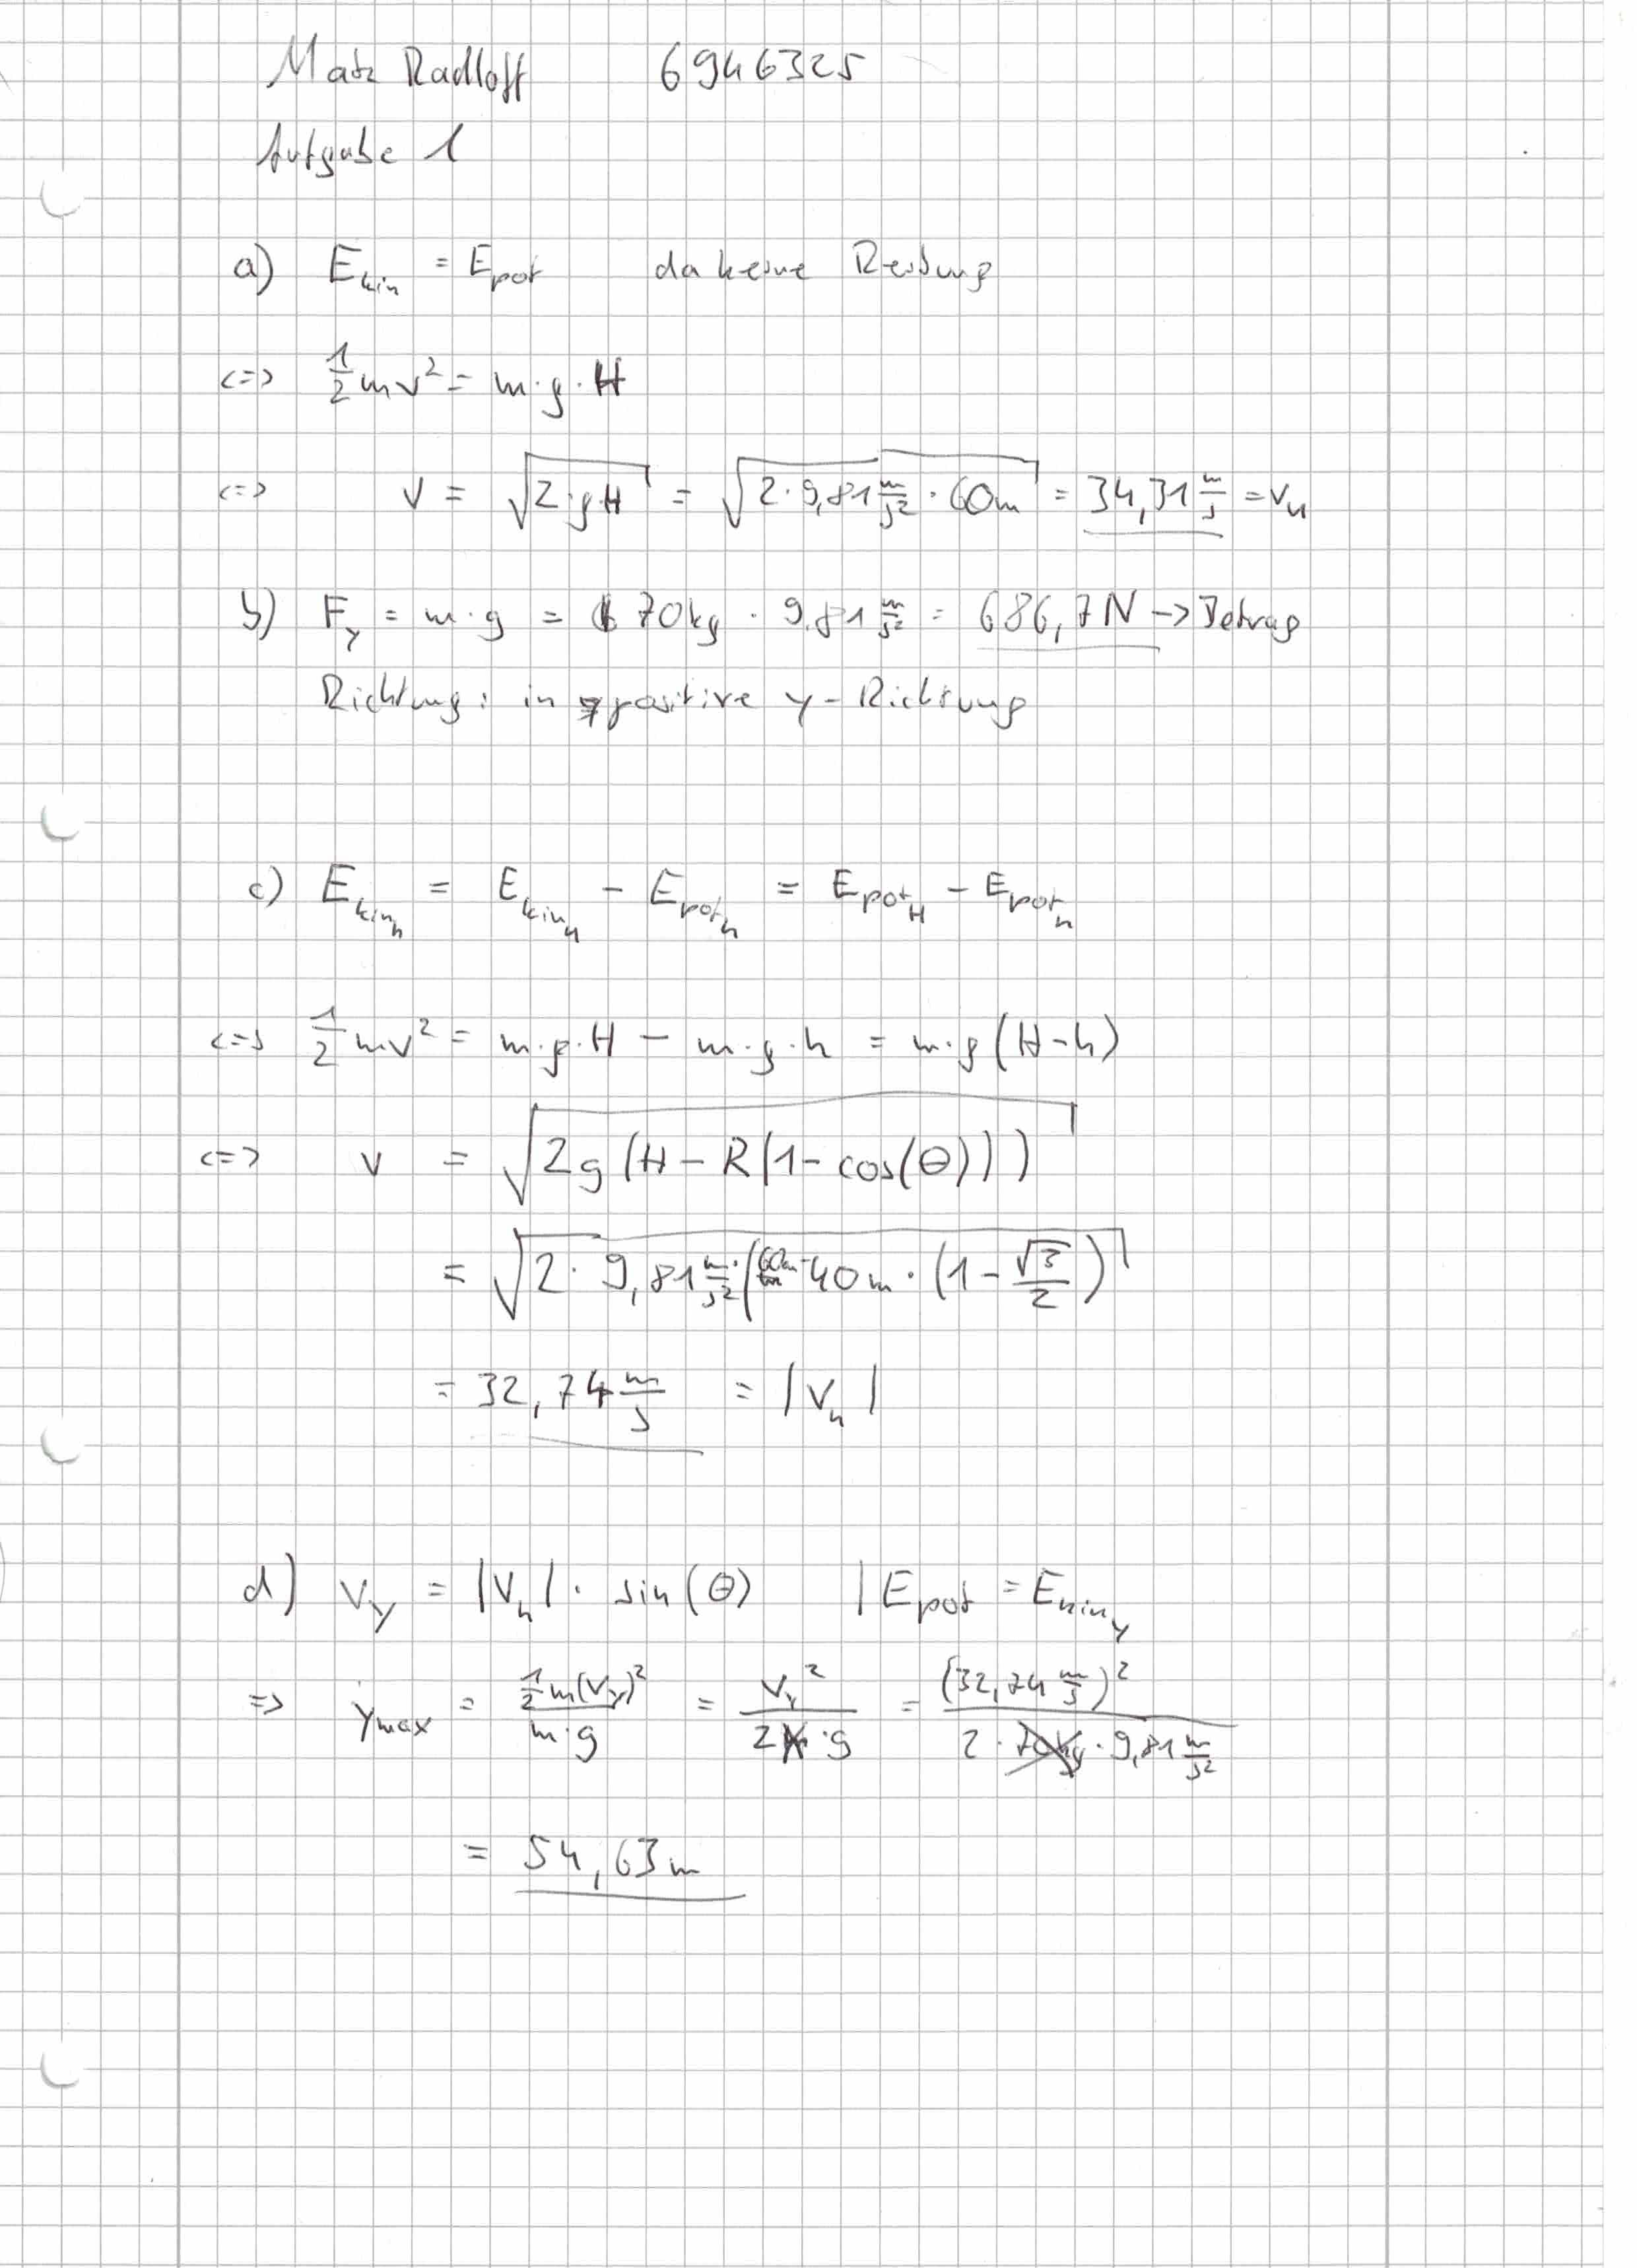 Matz Radloff 6946325
Aufgabe 1
a) E_kin = E_pot da keine Reibung
<=> 1/2 mv² = m·g·H
<=> v = √(2·g·H) = √(2·9,81 m/s² · 60m) = 34,31 m/s = v_u
b) F_y = m·g = 70kg · 9,81 m/s² = 686,7N -> Betrag
Richtung: in positive y-Richtung
c) E_kin_h = E_kin_u - E_pot_h = E_pot_H - E_pot_h
<=> 1/2 mv² = m·g·H - m·g·h = m·g(H-h)
<=> v = √(2g(H-R(1-cos(Θ))))
= √(2·9,81 m/s² · (60m - 40m·(1-√3/2))
= 32,74 m/s = |v_h|
d) v_y = |v_h| · sin(Θ) | E_pot = E_kin_y
=> y_max = 1/2 m(v_y)² / m·g = v_y² / 2·g = (32,74 m/s)² / 2 · 70kg · 9,81 m/s²
= 54,63m